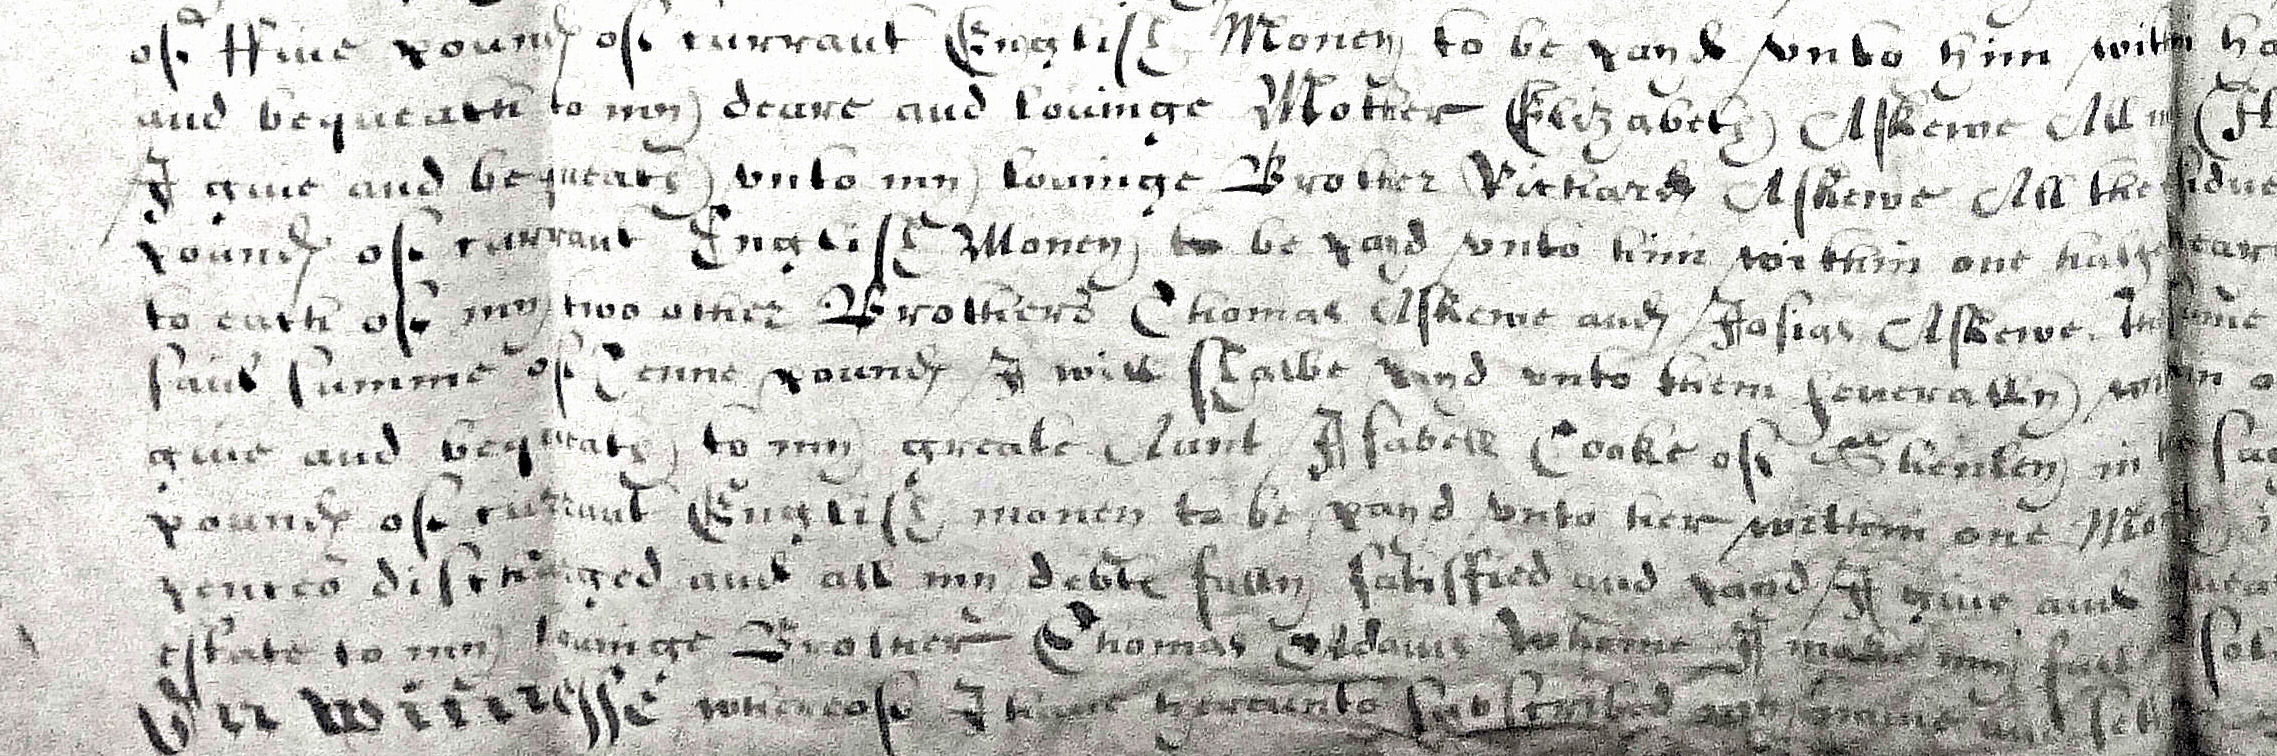 of ffiue pound of currant English Money to be payd vnto him within ha
and bequeath to my deare and louinge Mother Elizabeth Askewe All
I giue and bequeath vnto my louinge Brother Richard Askewe All the
pound of currant English Money to be payd vnto him within one halfe
to each of my two other Brothers Thomas Askewe and Josias Askewe.
said summe of Tenne pound I will shalbe payd vnto them seuerally
giue and bequeath to my greate Aunt Isabell Cooke of Shenley in
pound of currant English money to be payd vnto her within one
discharged and all my debte fully satisfied and payd I giue and
estate to my louinge Brother Thomas Adams whome I make my full sole
In witnesse whereof I haue herevnto subscribed my name and